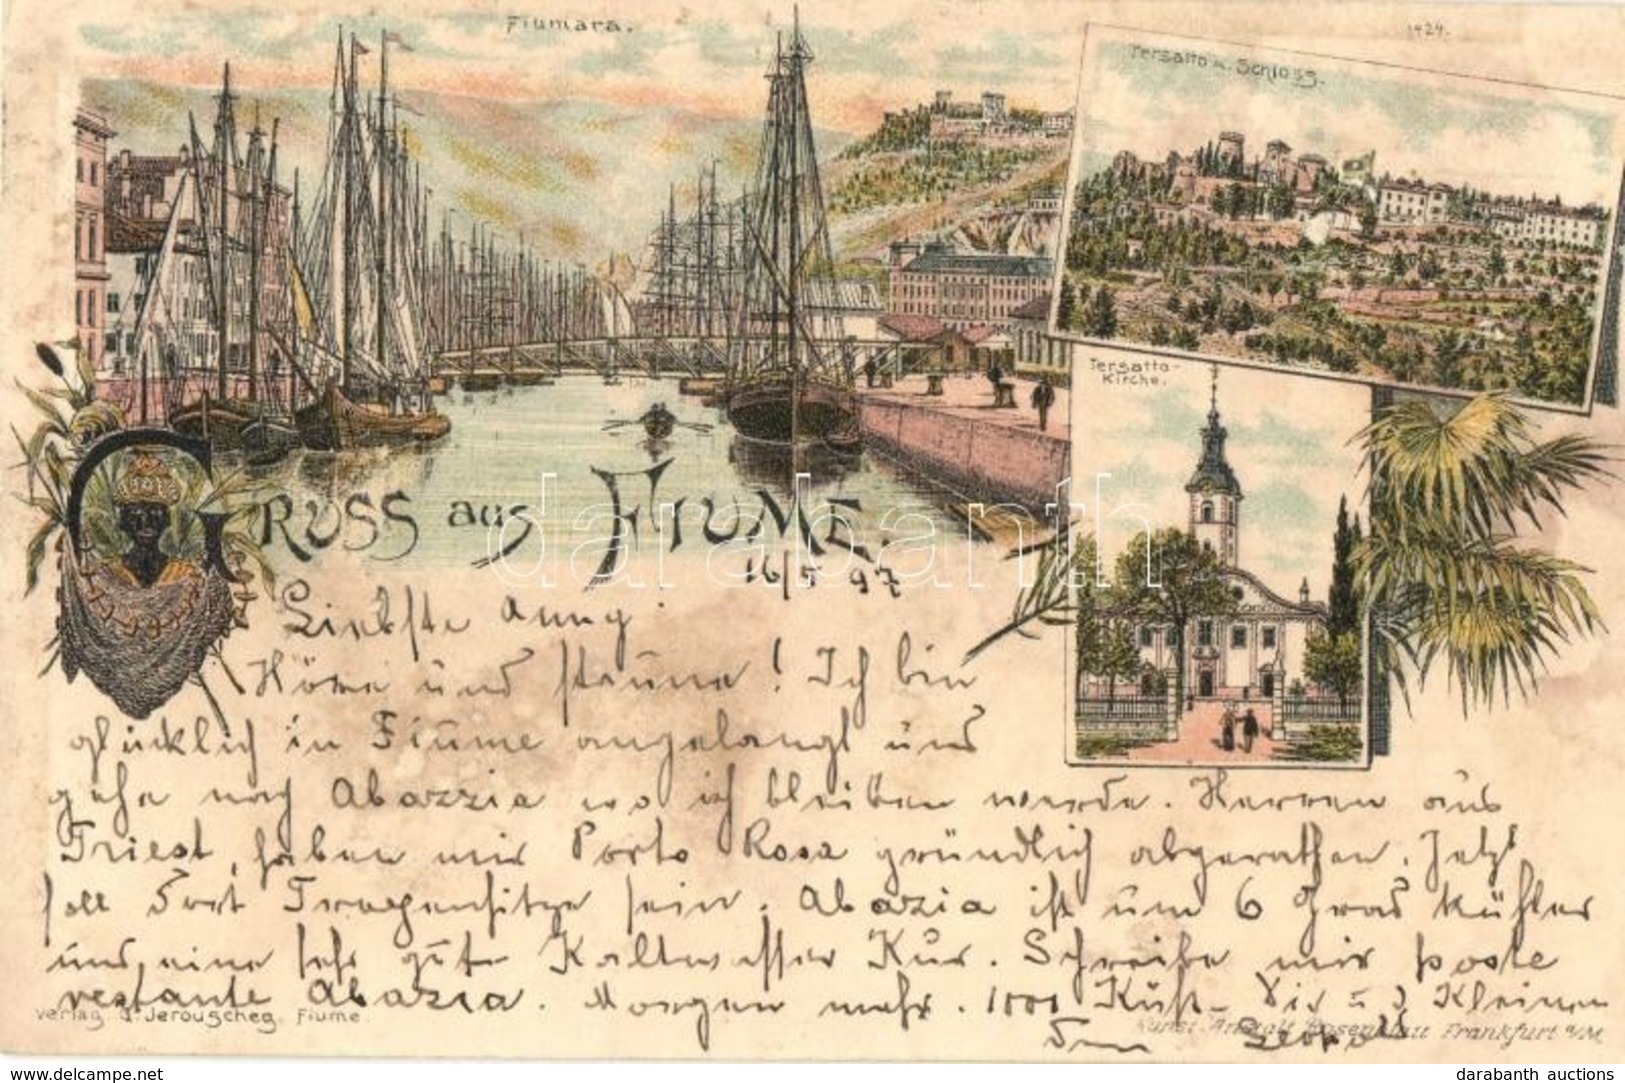 Fiumara.
1424.
Tersatto m. Schloss.
Tersatto-
Kirche.
Gruss aus Fiume.
darabanth
16/5 97
Liebste Anny.
Höre und staune! Ich bin
glücklich in Fiume angelangt und
gehe nach Abazzia wo ich bleiben werde. Herren aus
Triest, haben mir Porto Rosa gründlich abgerathen. Jetzt
soll dort Tropenhitze sein. Abazia ist um 6 Grad kühler
und eine sehr gute Kaltwasser Kur. Schreibe mir poste
restante Abazia. Morgen mehr. 1000 Küsse Dir u d Kleinen
Dein Leop
Verlag G. Jerouscheg Fiume.
Kunst-Anstalt Rosenblatt Frankfurt a/M
This item is for sale on delcampe.net
darabanth auctions